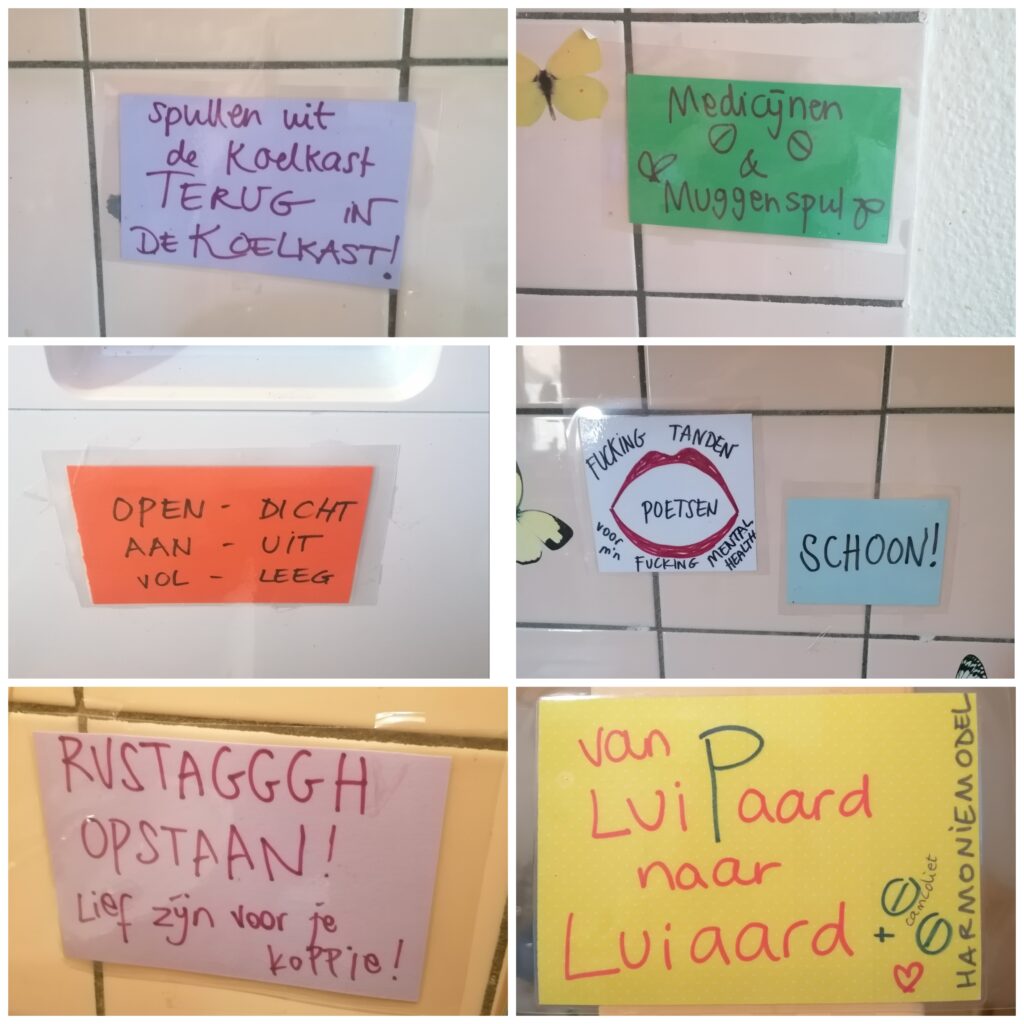 spullen uit
de Koelkast
TERUG in
DE KOELKAST!
Medicijnen
&
Muggenspul
OPEN - DICHT
AAN - UIT
VOL - LEEG
FUCKING TANDEN
POETSEN
voor m'n
FUCKING MENTAL HEALTH
SCHOON!
RUSTAGGGH
OPSTAAN!
Lief zijn voor je
koppie!
van
LuiPaard
naar
Luiaard
+
camcoliet
HARMONIEMODEL